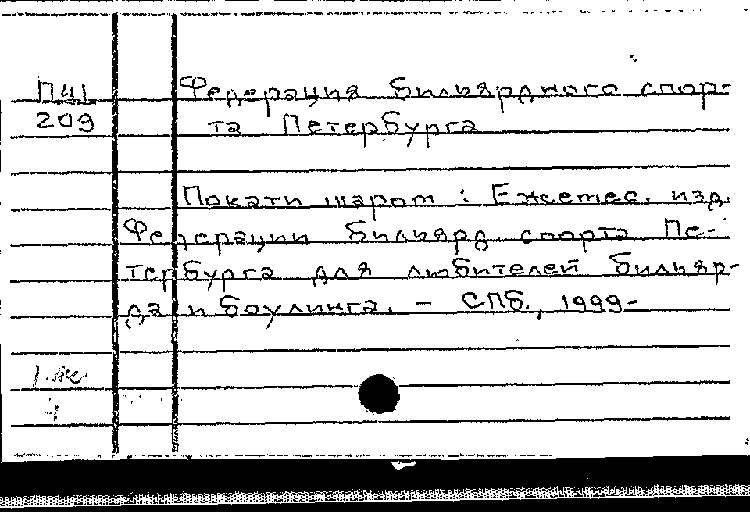 П41
209
Федерация бильярдного спор-
та Петербурга
Покати шаром : Ежемес. изд.
Федерации бильярд. спорта Пе-
тербурга для любителей бильяр-
да и боулинга. – СПб., 1999-